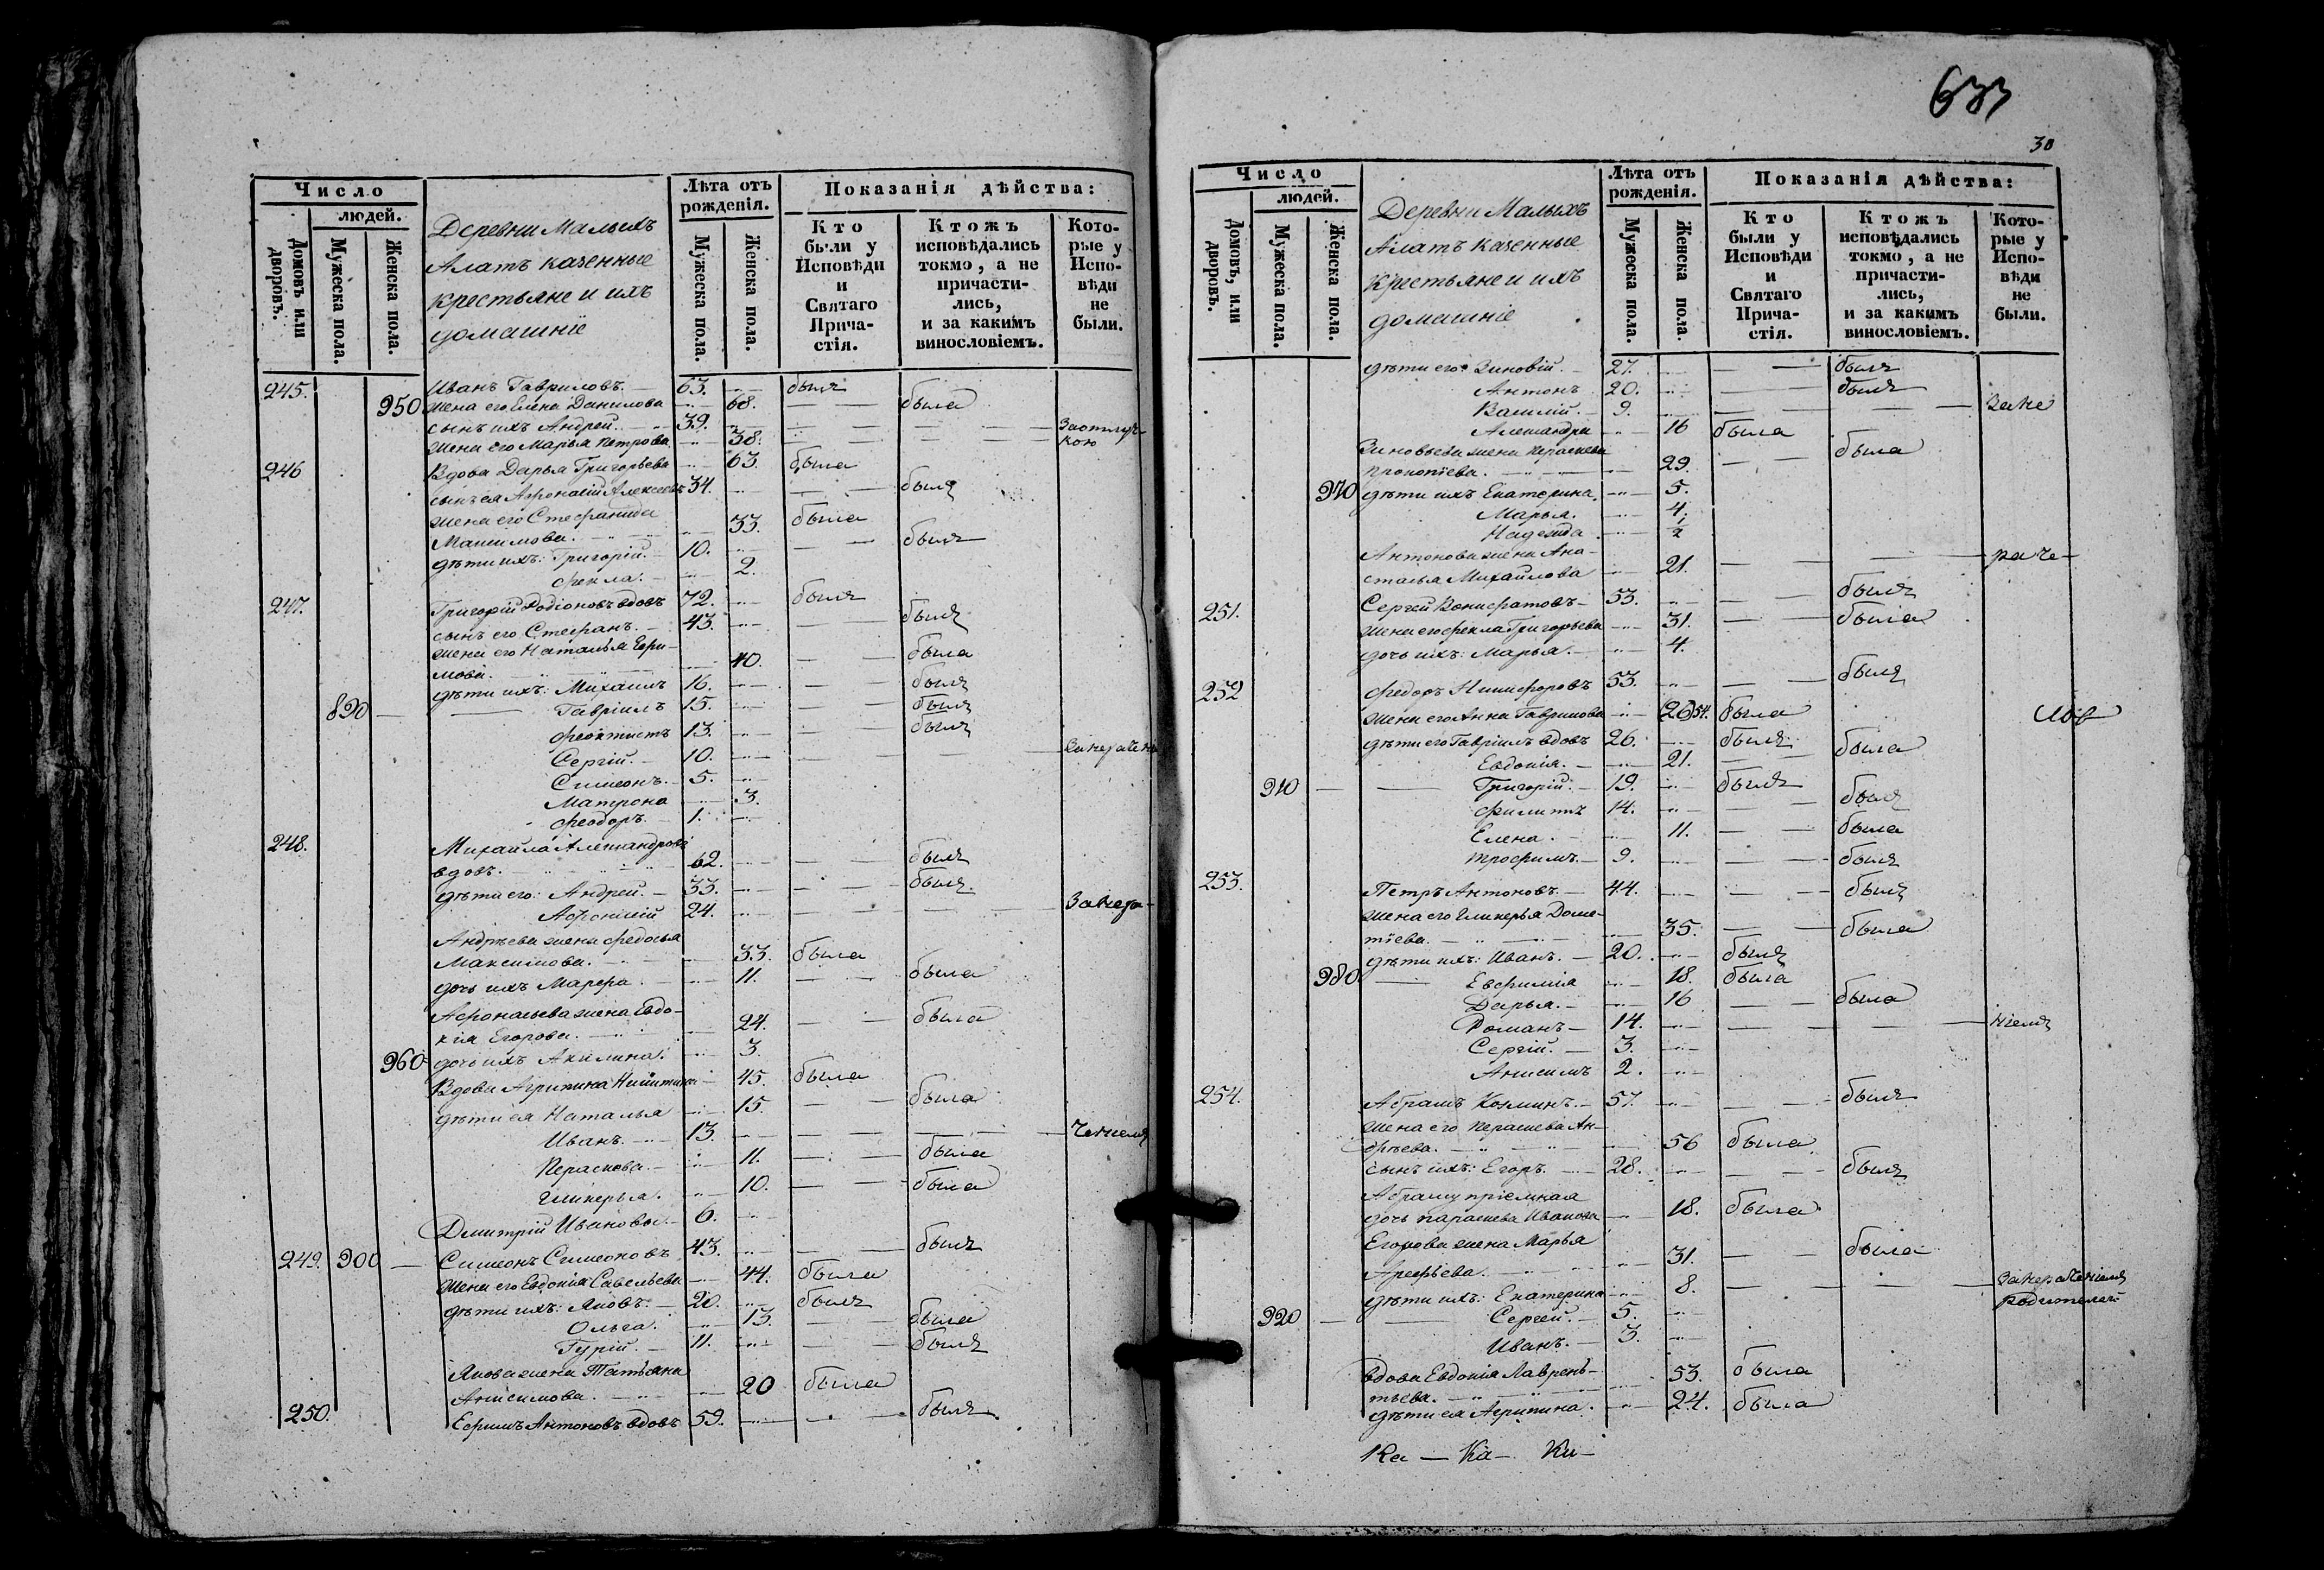 Число
людей.
Домовъ или дворовъ.
Мужеска пола.
Женска пола.
Деревни Малыхъ
Алатъ казенные
крестьяне и ихъ
домашніе
Лѣта отъ рожденія.
Мужеска пола.
Женска пола.
Показанія дѣйства:
Кто были у Исповѣди и Святаго Прича-стія.
Ктожъ исповѣдались токмо, а не причасти-лись, и за какимъ винословіемъ.
Кото-рые у Испо-вѣди не были.
245. Иванъ Гавриловъ. 63. былъ
950 жена его Елена Данилова 68. была
сынъ ихъ Андрей. 39. За отлуч-
жена его Марья Петрова 38. кою
246 Вдова Дарья Григорьева 63. была
сынъ ея Афонасій Алексеевъ 34. былъ
жена его Стефанида
Максимова. 33. была
дѣти ихъ: Григорій. 10. былъ
Фекла. 2.
247. Григорій Родіоновъ вдовъ 72. былъ
сынъ его Стефанъ. 43. былъ
жена его Наталья Ефи-
мова. 40. была
дѣти ихъ: Михаилъ 16. былъ
890 Гавріилъ 15. былъ
Феоктистъ 13. былъ
Сергій. 10. За нераче
Симеонъ. 5.
Матрона 3.
Феодоръ. 1.
248. Михаила Александровъ
вдовъ. 62. былъ
дѣти его: Андрей. 33. былъ
Афонасій 24. За нера-
Андрѣева жена Федосья
Максимова. 33. была
дочь ихъ Марфа. 11. была
Афонасьева жена Евдо-
кія Егорова. 24. была
960 дочь ихъ Акилина. 3.
Вдова Агрипина Никитина 45. была
дѣти ея Наталья 15. была
Иванъ. 13. ченіемъ
Параскева. 11. была
Гликерья. 10. была
Дмитрій Ивановъ. 6.
249. 900 Симеонъ Симеоновъ 43. былъ
жена его Евдокія Савельева 44. была
дѣти ихъ: Яковъ. 20. былъ
Ольга. 13. была
Гурій. 11. былъ
Якова жена Татьяна
Анисимова. 20 была
250. Ефимъ Антоновъ вдовъ 59. былъ
633
30
Число
людей.
Домовъ, или дворовъ.
Мужеска пола.
Женска пола.
Деревни Малыхъ
Алатъ казенные
крестьяне и ихъ
домашніе
Лѣта отъ рожденія.
Мужеска пола.
Женска пола.
Показанія дѣйства:
Кто были у Исповѣди и Святаго Прича-стія.
Ктожъ исповѣдались токмо, а не причасти-лись, и за какимъ винословіемъ.
Кото-рые у Испо-вѣди не были.
дѣти его: Зиновій. 27. былъ
Антонъ 20. былъ
Василій. 9. За не
Александра 16 была
Зиновьева жена Параскева
Прокопіева. 29. была
970 дѣти ихъ Екатерина. 5.
Марья. 4.
Надежда 1/2
Антонова жена Ана-
стасья Михайлова 21. раче-
251. Сергей Вонифатовъ 53. былъ
жена его Фекла Григорьева 31. была
дочь ихъ: Марья. 4.
252 Федоръ Никифоровъ 53. былъ
жена его Анна Гаврилова 26 54. была
дѣти его Гавріилъ вдовъ 26. былъ
Евдокія. 21. была
910 Григорій. 19. былъ
Филиппъ 14. былъ
Елена. 11. была
Трофимъ. 9. былъ
253. Петръ Антоновъ. 44. былъ
жена его Гликерья Доме-
тіева. 35. была
дѣти ихъ: Иванъ. 20. былъ
980 Евфимія 18. была
Дарья. 16 была
Романъ 14. ніемъ
Сергій. 3.
Анисимъ 2.
254. Абрамъ Козминъ. 57. былъ
жена его Параскева Ан-
дрѣева. 56 была
сынъ ихъ: Егоръ. 28. былъ
Абраму пріемная
дочь Параскева Иванова 18. была
Егорова жена Марья
Арефьева. 31. была
дѣти ихъ: Екатерина 8. За нераченіемъ
родителей
920 Сергей. 5.
Иванъ. 3.
вдова Евдокія Лаврень-
тьева. 53. была
дѣти ея Агрипина. 24. была
Ка — Ка — Ка —